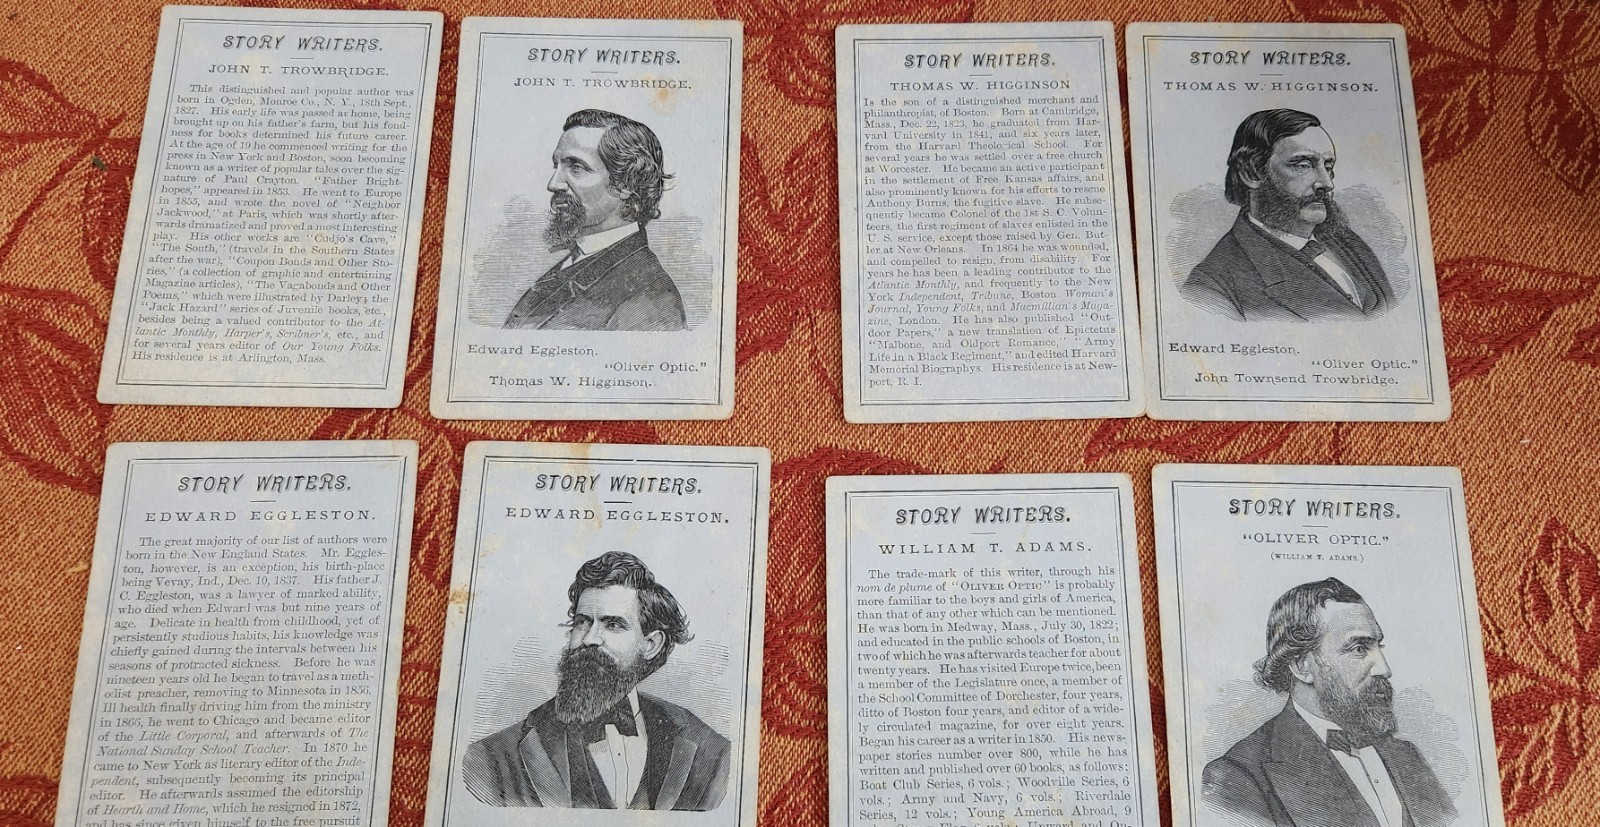 STORY WRITERS.
JOHN T. TROWBRIDGE.
This distinguished and popular author was
born in Ogden, Monroe Co., N. Y., 18th Sept.,
1827. His early life was passed at home, being
brought up on his father's farm, but his fond-
ness for books determined his future career.
At the age of 19 he commenced writing for the
press in New York and Boston, soon becoming
known as a writer of popular tales over the sig-
nature of Paul Crayton. "Father Bright-
hopes," appeared in 1853. He went to Europe
in 1855, and wrote the novel of "Neighbor
Jackwood," at Paris, which was shortly after-
wards dramatized and proved a most interesting
play. His other works are "Cudjo's Cave,"
"The South," (travels in the Southern States
after the war), "Coupon Bonds and Other Sto-
ries," (a collection of graphic and entertaining
Magazine articles), "The Vagabonds and Other
Poems," which were illustrated by Darley; the
"Jack Hazard" series of Juvenile books, etc.,
besides being a valued contributor to the At-
lantic Monthly, Harper's, Scribner's, etc., and
for several years editor of Our Young Folks.
His residence is at Arlington, Mass.
STORY WRITERS.
JOHN T. TROWBRIDGE.
Edward Eggleston.
"Oliver Optic."
Thomas W. Higginson.
STORY WRITERS.
THOMAS W. HIGGINSON
Is the son of a distinguished merchant and
philanthropist, of Boston. Born at Cambridge,
Mass., Dec. 22, 1823, he graduated from Har-
vard University in 1841, and six years later,
from the Harvard Theological School. For
several years he was settled over a free church
at Worcester. He became an active participant
in the settlement of Free Kansas affairs, and
also prominently known for his efforts to rescue
Anthony Burns, the fugitive slave. He subse-
quently became Colonel of the 1st S. C. Volun-
teers, the first regiment of slaves enlisted in the
U. S. service, except those raised by Gen. But-
ler at New Orleans. In 1864 he was wounded,
and compelled to resign, from disability. For
years he has been a leading contributor to the
Atlantic Monthly, and frequently to the New
York Independent, Tribune, Boston Woman's
Journal, Young Folks, and Macmillian's Maga-
zine, London. He has also published "Out-
door Papers," a new translation of Epictetus
"Malbone, and Oldport Romance," "Army
Life in a Black Regiment," and edited Harvard
Memorial Biographys. His residence is at New-
port, R. I.
STORY WRITERS.
THOMAS W. HIGGINSON.
Edward Eggleston.
"Oliver Optic."
John Townsend Trowbridge.
STORY WRITERS.
EDWARD EGGLESTON.
The great majority of our list of authors were
born in the New England States. Mr. Eggles-
ton, however, is an exception, his birth-place
being Vevay, Ind., Dec. 10, 1837. His father J.
C. Eggleston, was a lawyer of marked ability,
who died when Edward was but nine years of
age. Delicate in health from childhood, yet of
persistently studious habits, his knowledge was
chiefly gained during the intervals between his
seasons of protracted sickness. Before he was
nineteen years old he began to travel as a meth-
odist preacher, removing to Minnesota in 1856.
Ill health finally driving him from the ministry
in 1866, he went to Chicago and became editor
of the Little Corporal, and afterwards of The
National Sunday School Teacher. In 1870 he
came to New York as literary editor of the Inde-
pendent, subsequently becoming its principal
editor. He afterwards assumed the editorship
of Hearth and Home, which he resigned in 1872,
and has since given himself to the free pursuit
STORY WRITERS.
EDWARD EGGLESTON.
STORY WRITERS.
WILLIAM T. ADAMS.
The trade-mark of this writer, through his
nom de plume of "OLIVER OPTIC" is probably
more familiar to the boys and girls of America,
than that of any other which can be mentioned.
He was born in Medway, Mass., July 30, 1822;
and educated in the public schools of Boston, in
two of which he was afterwards teacher for about
twenty years. He has visited Europe twice, been
a member of the Legislature once, a member of
the School Committee of Dorchester, four years,
ditto of Boston four years, and editor of a wide-
ly circulated magazine, for over eight years.
Began his career as a writer in 1850. His news-
paper stories number over 800, while he has
written and published over 60 books, as follows:
Boat Club Series, 6 vols.; Woodville Series, 6
vols.; Army and Navy, 6 vols.; Riverdale
Series, 12 vols.; Young America Abroad, 9
STORY WRITERS.
"OLIVER OPTIC."
(WILLIAM T. ADAMS.)